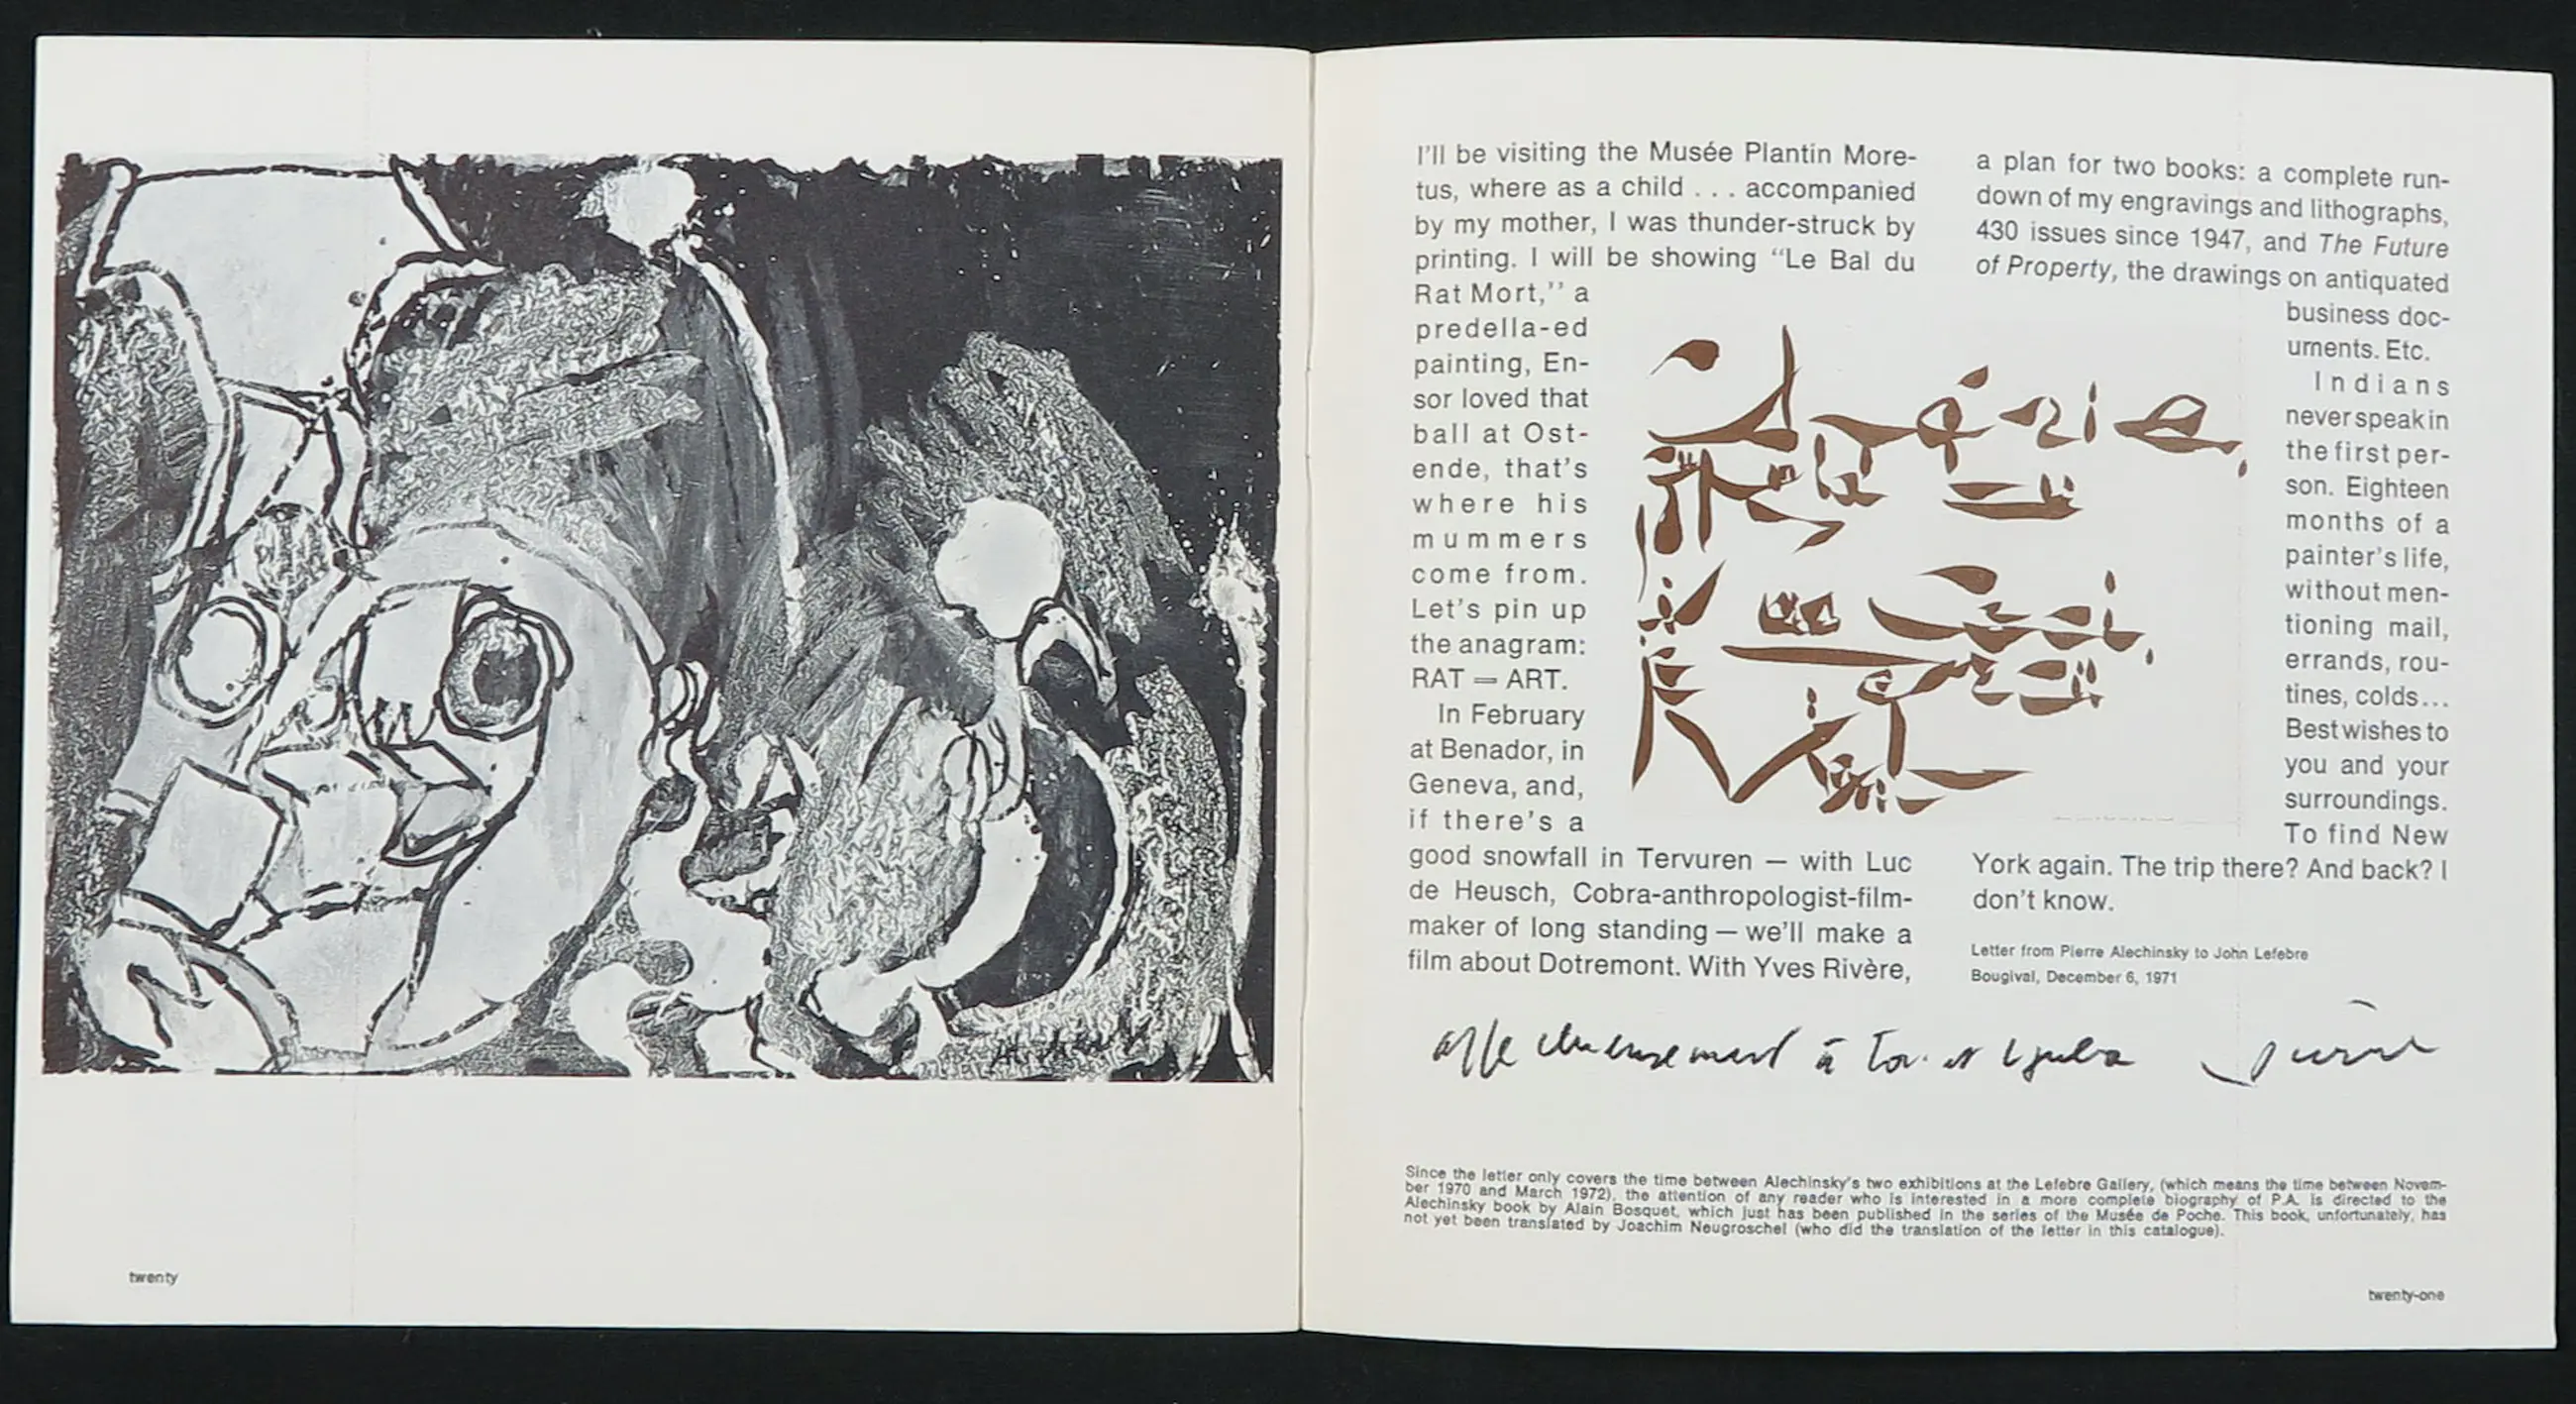 I'll be visiting the Musée Plantin More-
tus, where as a child . . . accompanied
by my mother, I was thunder-struck by
printing. I will be showing “Le Bal du
Rat Mort,’’ a
predella-ed
painting, En-
sor loved that
ball at Ost-
ende, that's
where his
mummers
come from.
Let's pin up
the anagram:
RAT = ART.
In February
at Benador, in
Geneva, and,
if there's a
good snowfall in Tervuren — with Luc
de Heusch, Cobra-anthropologist-film-
maker of long standing — we'll make a
film about Dotremont. With Yves Rivère,
a plan for two books: a complete run-
down of my engravings and lithographs,
430 issues since 1947, and The Future
of Property, the drawings on antiquated
business doc-
uments. Etc.
Indians
never speak in
the first per-
son. Eighteen
months of a
painter's life,
without men-
tioning mail,
errands, rou-
tines, colds...
Best wishes to
you and your
surroundings.
To find New
York again. The trip there? And back? I
don't know.
Letter from Pierre Alechinsky to John Lefebre
Bougival, December 6, 1971
affectueusement à toi et
Pierre
Since the letter only covers the time between Alechinsky's two exhibitions at the Lefebre Gallery, (which means the time between Novem-
ber 1970 and March 1972), the attention of any reader who is interested in a more complete biography of P.A. is directed to the
Alechinsky book by Alain Bosquet, which just has been published in the series of the Musée de Poche. This book, unfortunately, has
not yet been translated by Joachim Neugroschel (who did the translation of the letter in this catalogue).
twenty
twenty-one